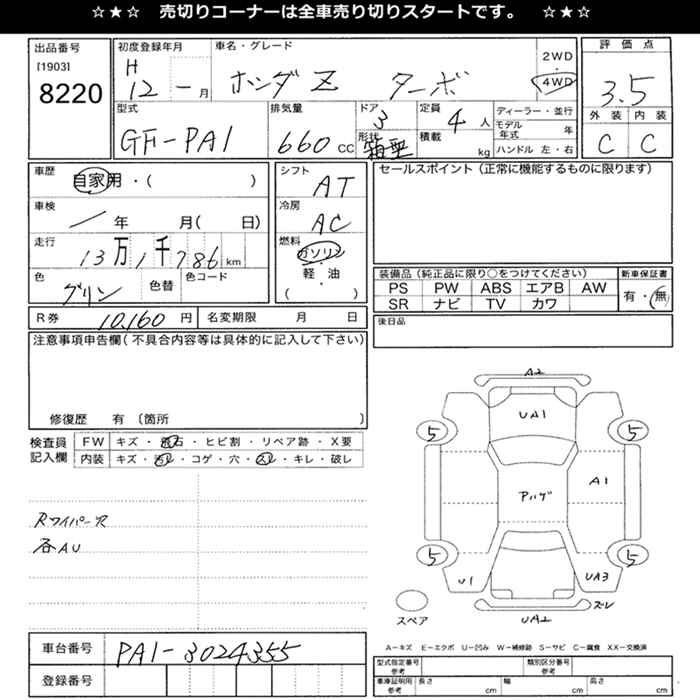 ☆★☆ 売切りコーナーは全車売り切りスタートです。 ☆★☆
出品番号 [1903] 8220
初度登録年月 H 12年 - 月
車名・グレード ホンダ Z ターボ
2WD ・ 4WD
評価点 3.5
外装 内装
C C
型式 GF-PA1
排気量 660 CC
ドア 3
形状
定員 4 人
積載 kg
ディーラー・並行
モデル年式 年
ハンドル 左・右
車歴 自家用・( )
車検 / 年 月( 日)
走行 13万1千786 km
色 グリン 色替 色コード
シフト AT
冷房 AC
燃料 ガソリン
軽・油
( )
セールスポイント(正常に機能するものに限ります)
装備品(純正品に限り○をつけてください)
PS PW ABS エアB AW
SR ナビ TV カワ
新車保証書
有・(無)
R券 10,160 円 名変期限 月 日
後日品
注意事項申告欄(不具合内容等は具体的に記入して下さい)
修復歴 有〔箇所 〕
検査員記入欄
FW キズ・飛石・ヒビ割・リペア跡・X要
内装 キズ・汚レ・コゲ・穴・スレ・キレ・破レ
Rワイパー欠
各AU
A2
UA1
5 5
アハゲ A1
5 5
U1 UA3
スペア
ズレ
UA2
A-キズ E-エクボ U-凹み W-補修跡 S-サビ C-腐食 XX-交換済
車台番号 PA1-3024355
登録番号
型式指定番号 参考 類別区分番号 参考
車庫証明用 参考 長さ cm 幅 cm 高さ cm